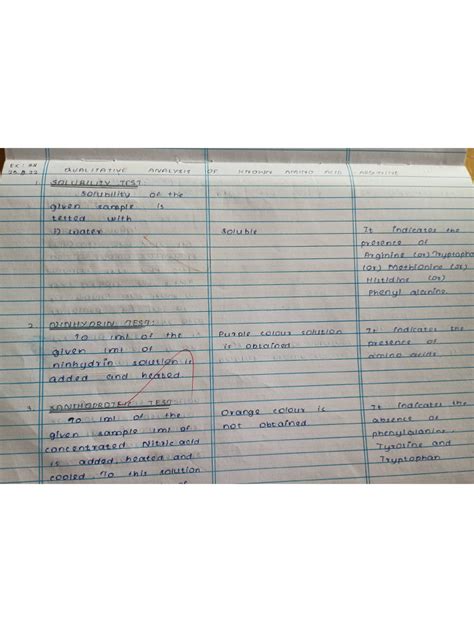 QUALITATIVE ANALYSIS OF KNOWN AMINO ACID ARGININE
1. SOLUBILITY TEST:
Solubility of the
given sample is
tested with
i) water
Soluble
It indicates the
presence of
Arginine (or) Tryptophan
(or) Methionine (or)
Histidine (or)
Phenyl alanine.
2. NINHYDRIN TEST:
To 1ml of the
given 1ml of
ninhydrin solution is
added and heated.
Purple colour solution
is obtained.
It indicates the
presence of
amino acids.
3. XANTHOPROTEIC TEST
To 1ml of the
given sample 1ml of
concentrated Nitric acid
is added, heated and
cooled. To this solution
Orange colour is
not obtained.
It indicates the
absence of
phenylalanine,
Tyrosine and
Tryptophan